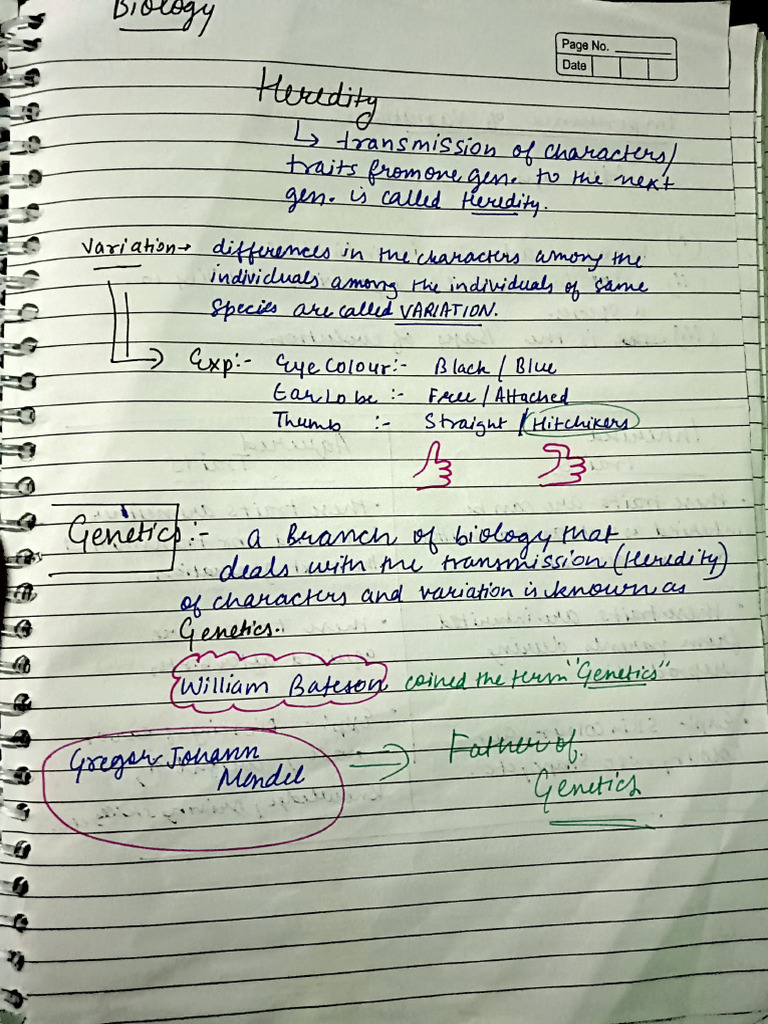 Biology
Page No.
Date
Heredity
↳ transmission of characters/
traits from one gen. to the next
gen. is called Heredity.
Variation → differences in the characters among the
individuals among the individuals of same
species are called VARIATION.
Exp:- Eye Colour:- Black / Blue
Ear Lobe :- Free / Attached
Thumb :- Straight / Hitchikers
Genetics:- a Branch of biology that
deals with the transmission (Heredity)
of characters and variation is known as
Genetics.
William Bateson coined the term "Genetics"
Gregor Johann
Mendel → Father of
Genetics